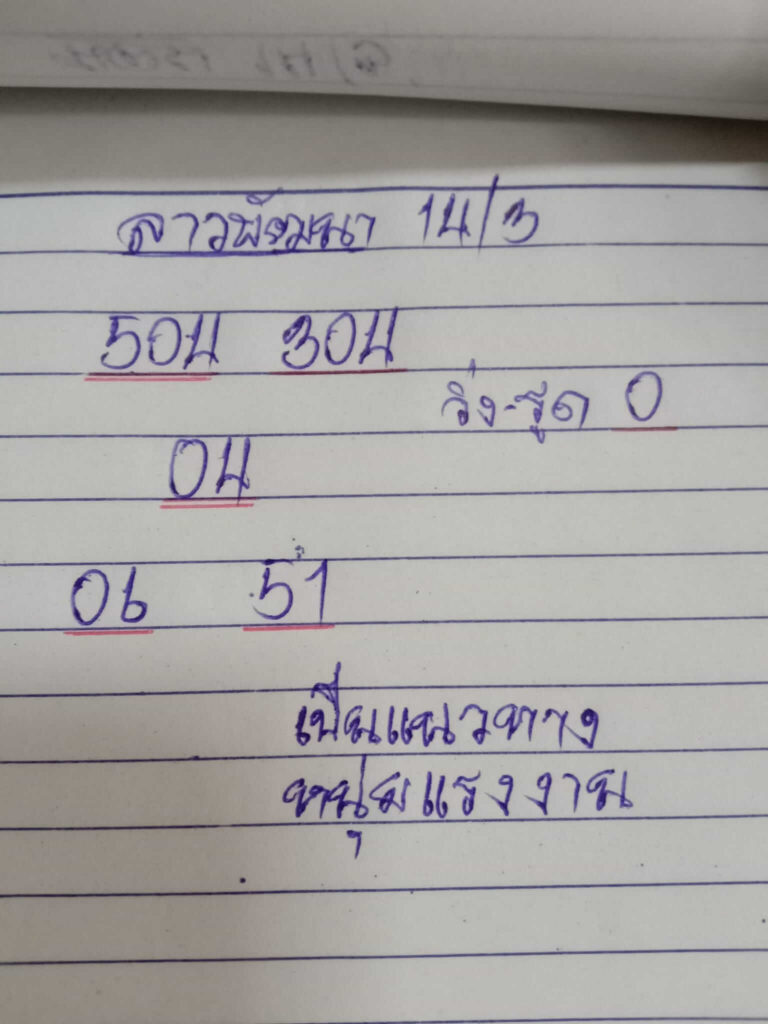 ลาวพัฒนา 14/3
504 304
วิ่ง-รูด 0
04
06 51
เป็นแนวทาง
หนุ่มแรงงาน